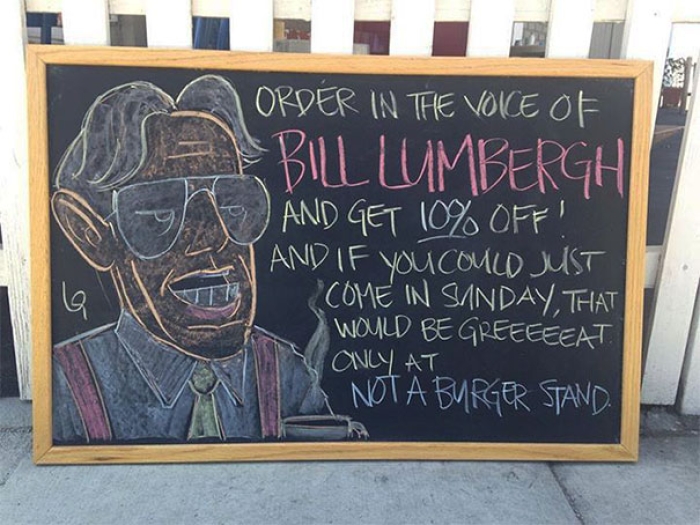 ORDER IN THE VOICE OF
BILL LUMBERGH
AND GET 10% OFF!
AND IF YOU COULD JUST
COME IN SUNDAY, THAT
WOULD BE GREEEEEAT
ONLY AT
NOT A BURGER STAND.